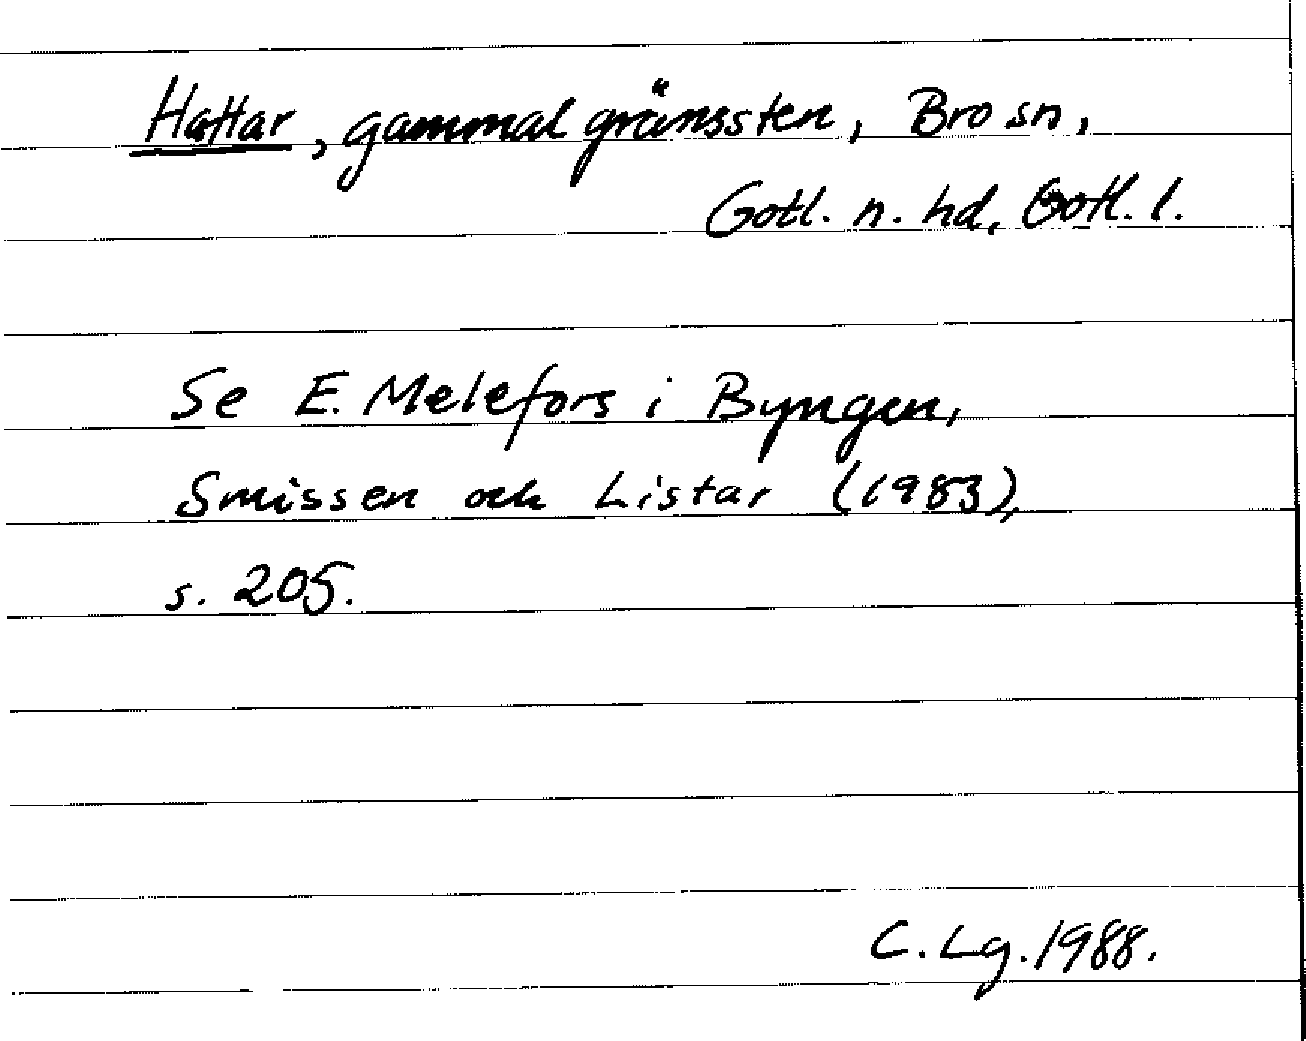 Hattar, gammal gränssten, Bro sn,
Gotl. n. hd, Gotl. l.
Se E. Melefors i Byngen,
Smissen och Listar (1983),
s. 205.
C. Lg. 1988.